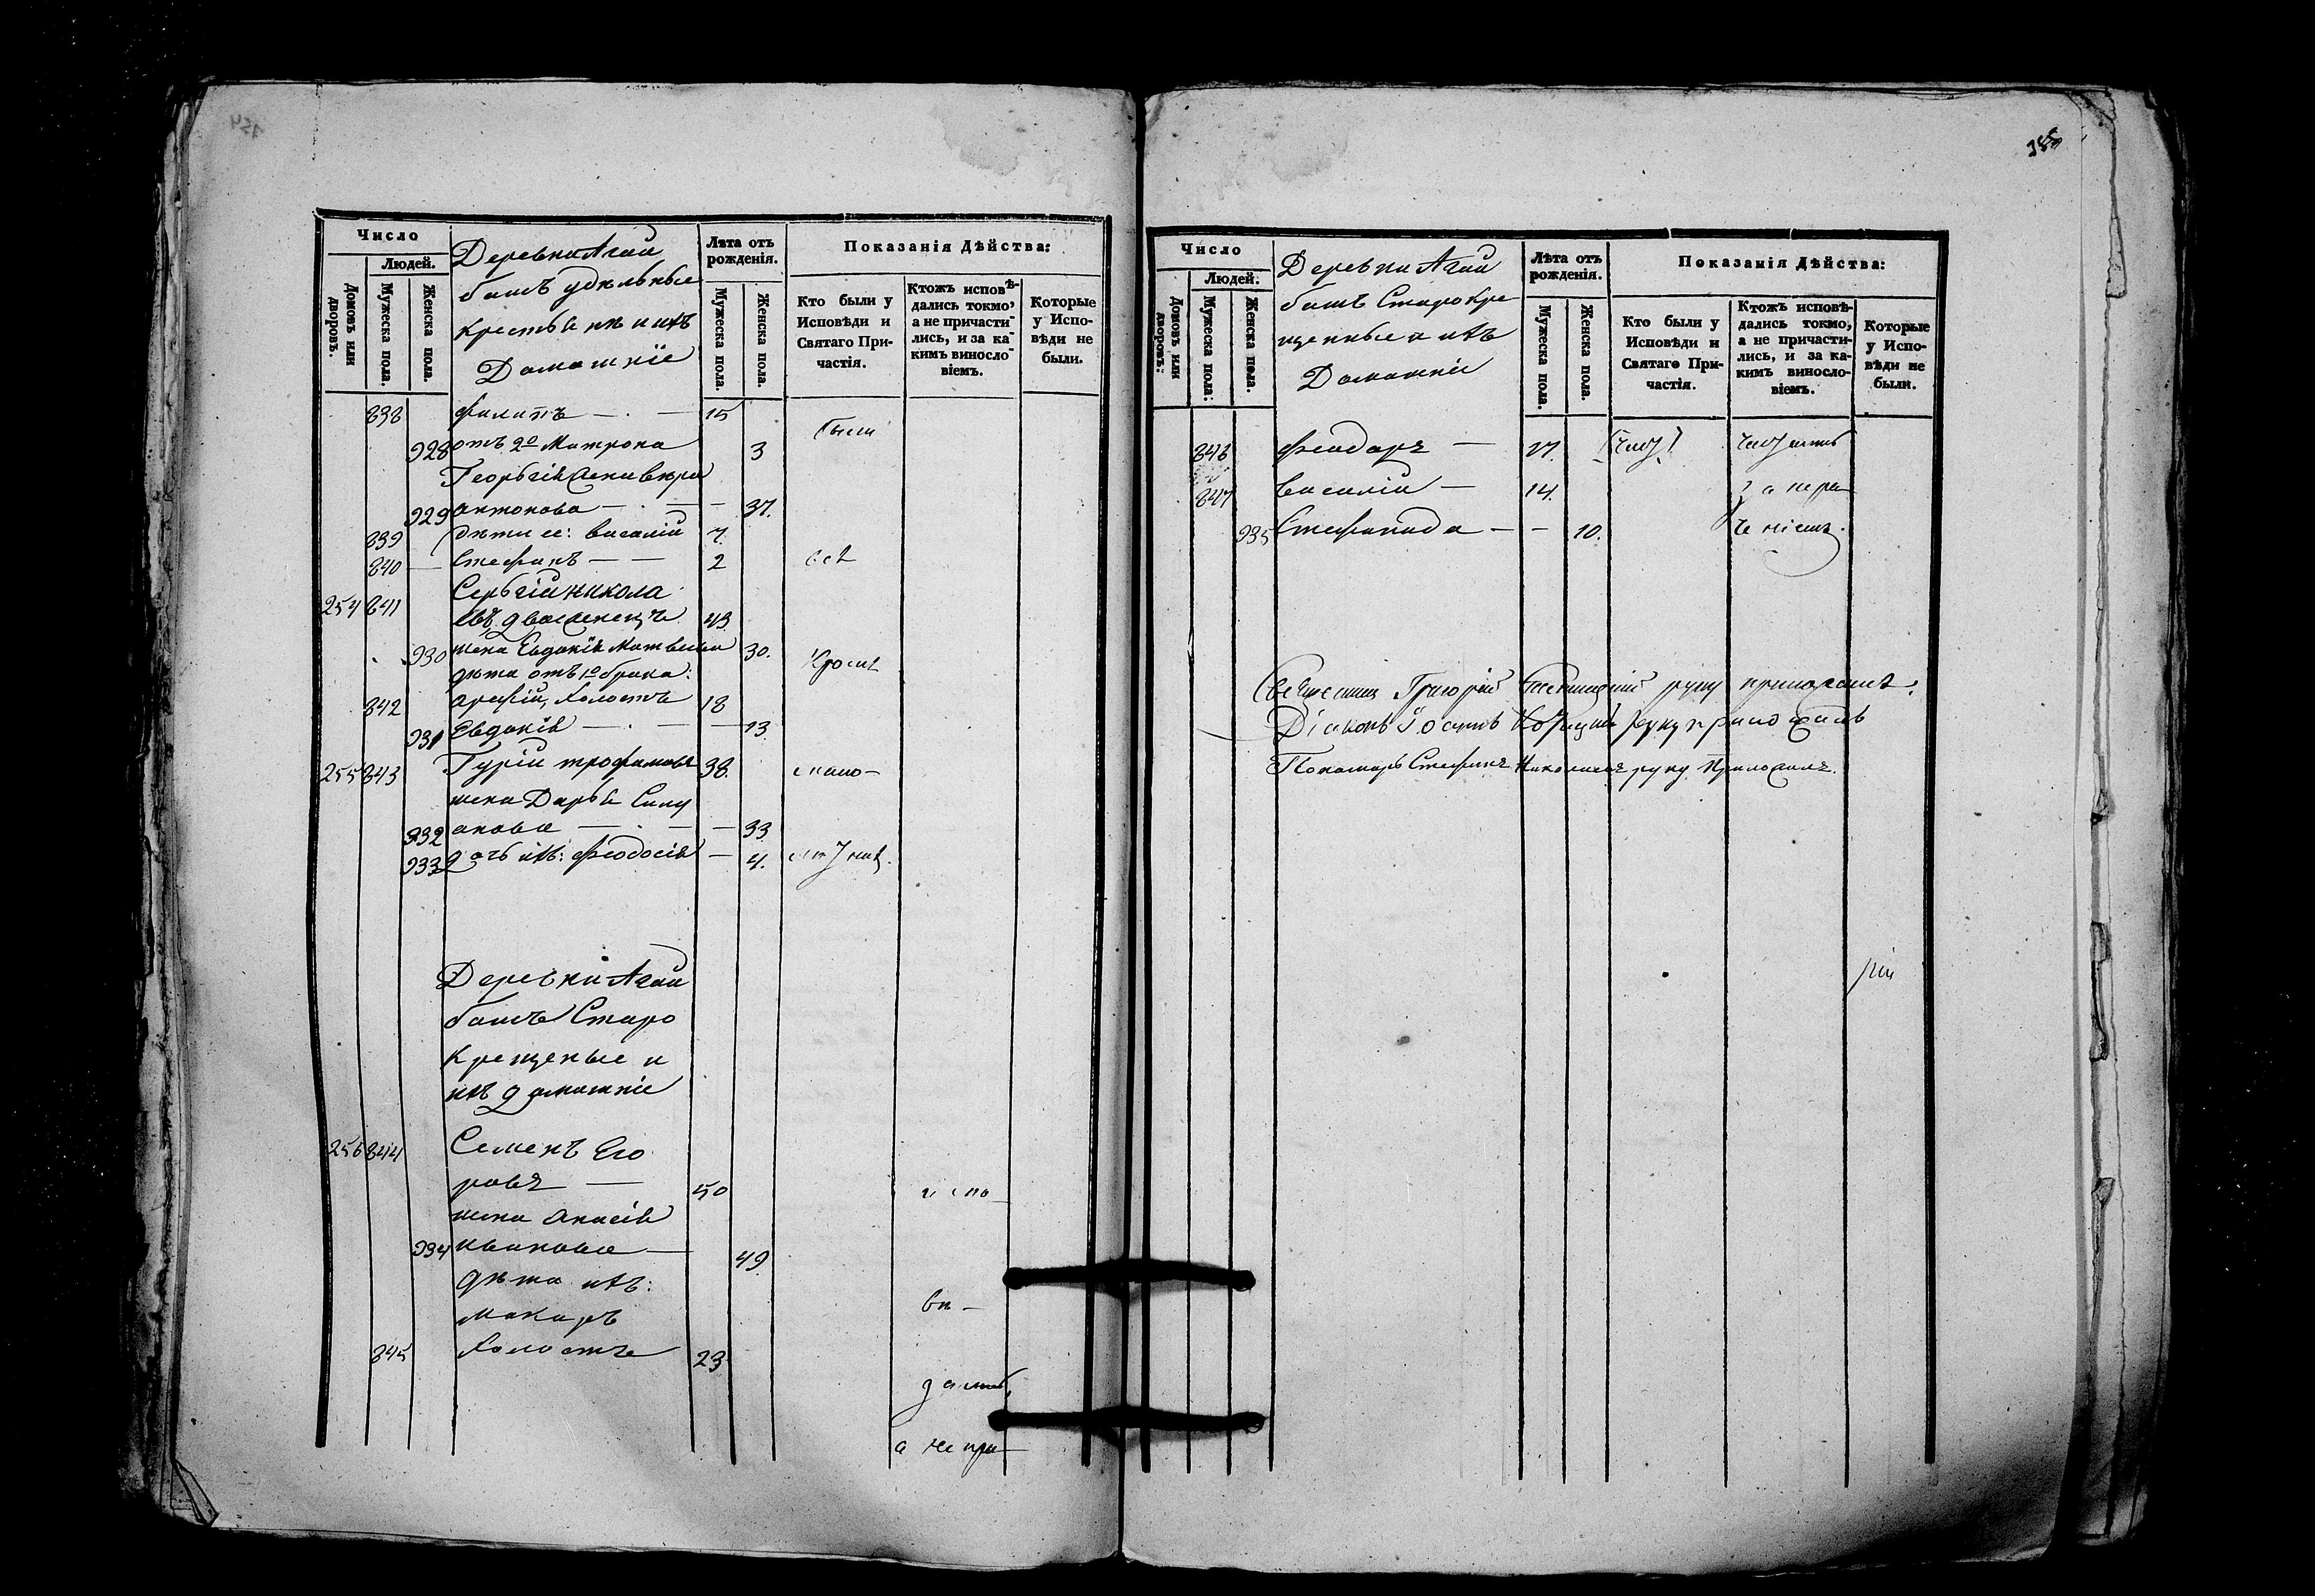 Число
Людей.
Домовъ или дворовъ.
Мужеска пола.
Женска пола.
Деревни Агай
башъ удѣльные
крестьяне и ихъ
Домашніе
Лѣта отъ рожденія.
Мужеска пола.
Женска пола.
Показанія Дѣйства:
Кто были у Исповѣди и Святаго Причастія.
Ктожъ исповѣдались токмо, а не причастились, и за какимъ винословіемъ.
Которые у Исповѣди не были.
838 Филипъ 15
были
928 отъ 2го Матрона 3
Георгія
929 Антонова 37.
839 дѣти ее: Василій 7.
840 Стефанъ 2
всѣ
254 841 Сергій Никола
евъ 43
930 жена Евдокія Матвеева 30.
дѣти отъ 1го брака:
кромѣ
842 холостъ 18
931 Евдокія 13
255 843 Гурій Трофимовъ 38.
мало-
жена Дарья Силу
932 анова 33
933 дочь ихъ: Феодосія 4.
лѣтних.
Деревни Агай
башъ Старо
крещеные и
ихъ домашніе
256 844 Семенъ Его
ровъ 50
испо
жена
934 Иванова 49
дѣти ихъ:
Макаръ
вѣ-
845 холостъ 23
дались,
а не при-
385
Число
Людей.
Домовъ или дворовъ:
Мужеска пола:
Женска пола.
Деревни Агай
башъ Старокре
щенные и ихъ
Домашніе
Лѣта отъ рожденія.
Мужеска пола.
Женска пола.
Показанія Дѣйства:
Кто были у Исповѣди и Святаго Причастія.
Ктожъ исповѣдались токмо, а не причастились, и за какимъ винословіемъ.
Которые у Исповѣди не были.
846 Феодоръ 17.
847 Василій 14.
935 Стефанида 10.
Священник Григорій руку приложилъ.
Діаконъ руку приложилъ
Пономарь Стефанъ Николаевъ руку приложилъ.